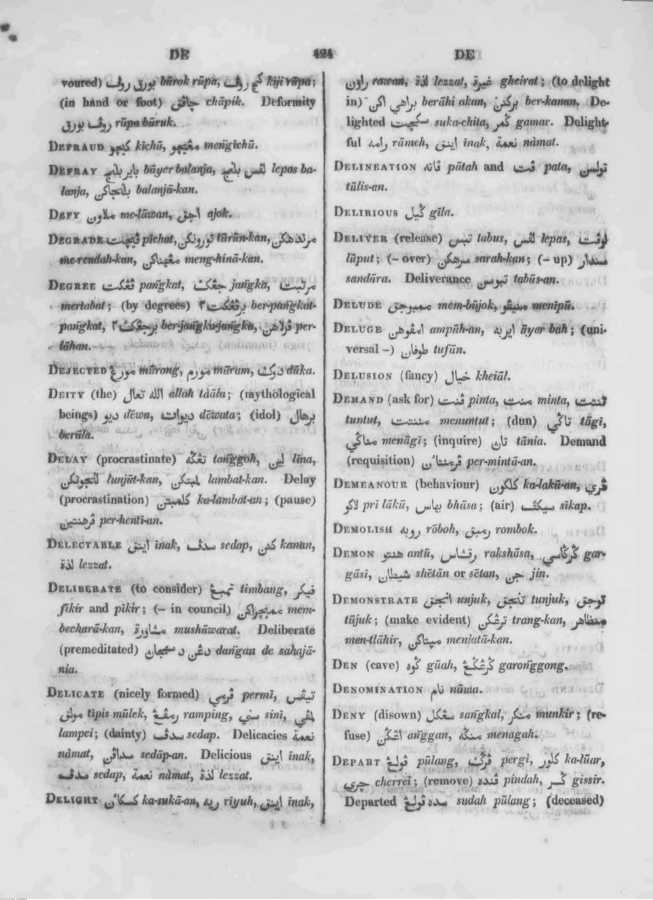 DE 424 DE
voured) بورق روف būrok rūpa, كج روف kiji rūpa;
(in hand or foot) چافق chāpik. Deformity
روف بورق rūpa būruk.
DEFRAUD كيچو kichū, مڠيچو meñgichū.
DEFRAY باير بلنج bāyer balanja, لفس بلنج lepas ba-
lanja, بلنجاكن balanjā-kan.
DEFY ملاون me-lāwan, اجق ajok.
DEGRADE pichat, تورونكن tūrūn-kan, مرندهكن
me-rendah-kan, مڠهيناكن meng-hinā-kan.
DEGREE ڤڠكت pañgkat, جڠك jañgka, مرتبت
mertabat; (by degrees) برڤڠكت٢ ber-pañgkat-
pañgkat, برجڠك٢ ber-jañgka-jañgka, ڤرلاهن per-
lāhan.
DEJECTED مورڠ mūrong, مورم mūrum, دوك dūka.
DEITY (the) الله تعالى allah taāla; (mythological
beings) ديو dēwa, ديوات dēwata; (idol) برهال
berāla.
DELAY (procrastinate) تڠگه tañggoh, لين līna,
لنجوتكن lunjūt-kan, لمبتكن lambat-kan. Delay
(procrastination) كلمبتن ka-lambat-an; (pause)
ڤرهنتين per-henti-an.
DELECTABLE اينق inak, سدڤ sedap, كنن kanan,
لذة lezzat.
DELIBERATE (to consider) تمبڠ timbang, فيكر
fikir and pikir; (– in council) ممبچراكن mem-
becharā-kan, مشاورة mushāwarat. Deliberate
(premeditated) دڠن د سهجان dañgan de sahajā-
nia.
DELICATE (nicely formed) ڤرمي permī, تيڤس
مولق tipis mūlek, رمڤڠ ramping, سني sini, لمڤي
lampei; (dainty) سدڤ sedap. Delicacies نعمة
nāmat, سداڤن sedāp-an. Delicious اينق inak,
سدڤ sedap, نعمة nāmat, لذة lezzat.
DELIGHT كسكاءن ka-sukā-an, ريه riyuh, اينق inak,
راون rawan, لذة lezzat, غيرة gheirat; (to delight
in) براهي اكن berāhi akan, بركنن ber-kanan, De-
lighted سكچيت suka-chita, گمر gamar. Delight-
ful رامه rāmeh, اينق inak, نعمة nāmat.
DELINEATION ڤاته pātah and ڤت pata, توليسن
tūlis-an.
DELIRIOUS گيل gīla.
DELIVER (release) تبس tabus, لفس lepas, لوڤت
lūput; (– over) سرهكن sarah-kan; (– up) سندار
sandāra. Deliverance تبوسن tabūs-an.
DELUDE ممبوجق mem-būjok, منيڤو menipū.
DELUGE امڤوهن ampūh-an, اير به āyar bah; (uni-
versal –) طوفان tufān.
DELUSION (fancy) خيال kheiāl.
DEMAND (ask for) ڤنت pinta, منت minta, تنتت
tuntut, مننتت menuntut; (dun) تاگي tāgi,
مناگي menāgi; (inquire) تان tānia. Demand
(requisition) ڤرمنتاءن per-mintā-an.
DEMEANOUR (behaviour) كلاكون ka-lakū-an, ڤري
لاكو pri lākū, بهاس bhāsa; (air) سيكڤ sikap.
DEMOLISH روبه rōboh, رمبق rombok.
DEMON هنتو antū, رقشاس rakshāsa, گرگاسي gar-
gāsi, شيطان shētān or sētan, جن jin.
DEMONSTRATE انجق unjuk, تنجق tunjuk, توجق
tūjuk; (make evident) ترڠكن trang-kan, منظاهر
men-tlāhir, مپتاكن meniatā-kan.
DEN (cave) گوه gūah, گرڠگڠ garonggong.
DENOMINATION نام nāma.
DENY (disown) سڠكل sañgkal, منكر munkir; (re-
fuse) اڠگن añggan, منگه menagah.
DEPART ڤولڠ pūlang, ڤرگي pergi, كلور ka-lūar,
چري cherrei; (remove) ڤنده pindah, گسر gissir.
Departed سده ڤولڠ sudah pūlang; (deceased)